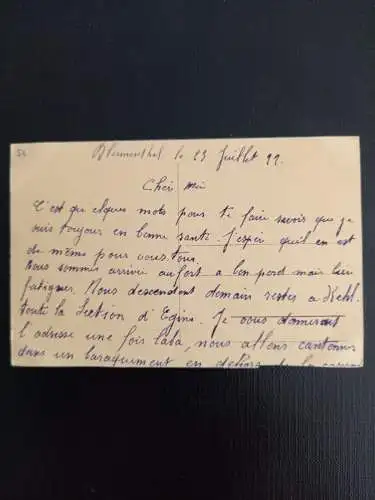 54
Blumenthal le 23 Juillet 22.
Cher
C'est que elques mots pour te faire savoir que je
suis toujour en bonne santé. J'espér qu'il en est
de même pour vous tous.
Nous sommes arrivée au fort a bon pord mais bien
fatiguer. Nous descendent demain restes a Kehl.
toute la Section d'
Je vous donnerait
l'adresse une fois laba, nous allons cantonner
dans un baraquement en dehors de la